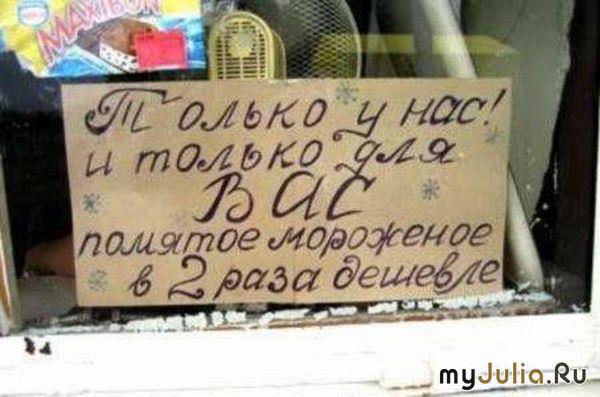 MAXIBON
Только у нас!
и только для
ВАС
помятое мороженое
в 2 раза дешевле
myJulia.Ru